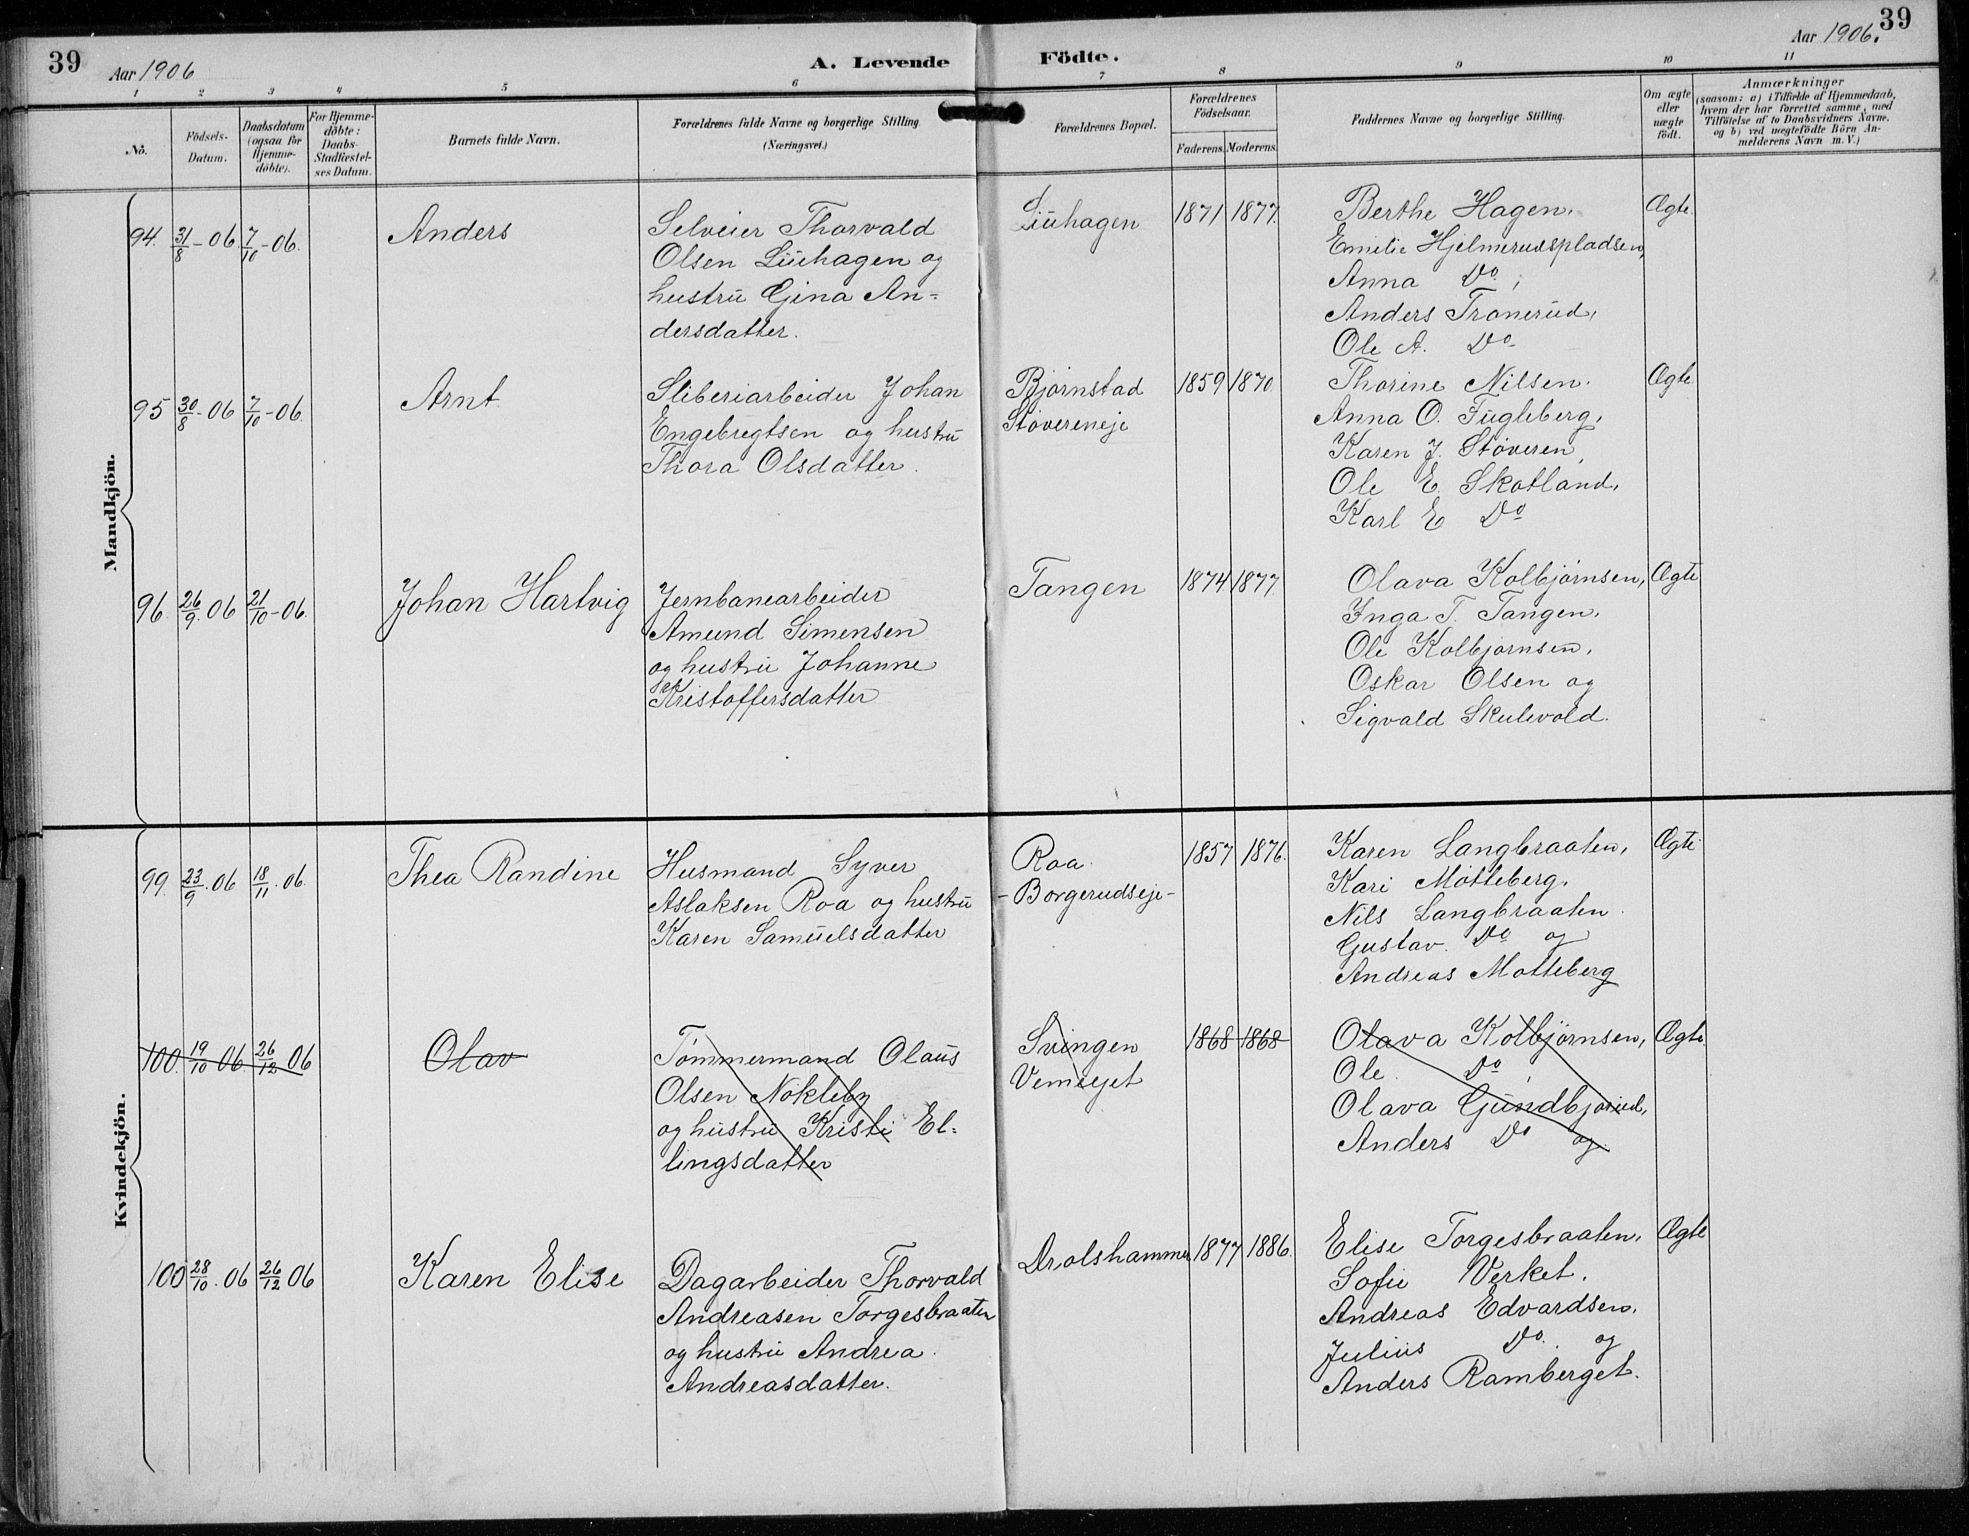 39
Aar 1906
A. Levende
Födte.
Aar 1906.
39
1 2 3 4 5 6 7 8 9 10 11
No.
Födsels-
Datum.
Daabsdatum
(ogsaa for
Hjemme-
döbte).
For Hjemme-
döbte:
Daabs-
Stadfæstel-
ses Datum.
Barnets fulde Navn.
Forældrenes fulde Navne og borgerlige Stilling.
(Næringsvei.)
Forældrenes Bopæl.
Forældrenes
Födselsaar.
Faderens. Moderens.
Faddernes Navne og borgerlige Stilling.
Om ægte
eller
uægte
födt.
Anmærkninger
(saasom: a) i Tilfælde af Hjemmedaab,
hvem der har forrettet samme, med
Tilföielse af to Daabsvidners Navne.
og b) ved uægtefödte Börn An-
melderens Navn m. V.)
Mandkjön.
94. 31/8-06. 7/10-06.
Anders
Selveier Thorvald
Olsen Liuhagen og
hustru Gina An=
dersdatter.
Liuhagen
1871 1877.
Berthe Hagen,
Emilie Hjelmerudspladsen,
Anna Do,
Anders Tronerud,
Ole A. Do
Ægte.
95 30/8-06 7/10-06.
Arnt
Sliberiarbeider Johan
Engebregtsen og hustru
Thora Olsdatter.
Bjørnstad
Støvereneje
1859 1870
Thorine Nilsen.
Anna O. Fugleberg,
Karen J. Støveren,
Ole E. Skotland,
Karl E Do
Ægte.
96. 26/9. 06 21/10-06.
Johan Hartvig
Jernbanearbeider
Amund Simensen
og hustru Johanne
Kristoffersdatter
Tangen
1874. 1877.
Olava Kolbjørnsen,
Inga T. Tangen.
Ole Kolbjørnsen,
Oskar Olsen og
Sigvald Skulevold.
Ægte
Kvindekjön.
99. 23/9. 06 18/11. 06.
Thea Randine
Husmand Syver
Aslaksen Roa og hustru
Karen Samuelsdatter
Roa.
-Borgerudseje-
1857 1876.
Karen Langbraaten,
Kari Møtteberg.
Nils Langbraaten.
Gustav. Do og
Andreas Møtteberg
Ægte
100. 19/10 06 26/12 06
Olav
Tømmermand Olaus
Olsen Nøkleby
og hustru Kristi El=
lingsdatter
Svingen
Vemeiet
1868 1868
Olava Kolbjørnsen,
Ole. Do,
Olava Gundbjørud,
Anders Do og
Ægte
100 28/10. 06 26/12 06
Karen Elise
Dagarbeider Thorvald
Andreasen Torgesbraaten
og hustru Andrea.
Andreasdatter.
Drolshammer
1877 1886.
Elise Torgesbraaten,
Sofie Verket.
Andreas Edvardsen,
Julius Do. og
Anders Ramberget.
Ægte